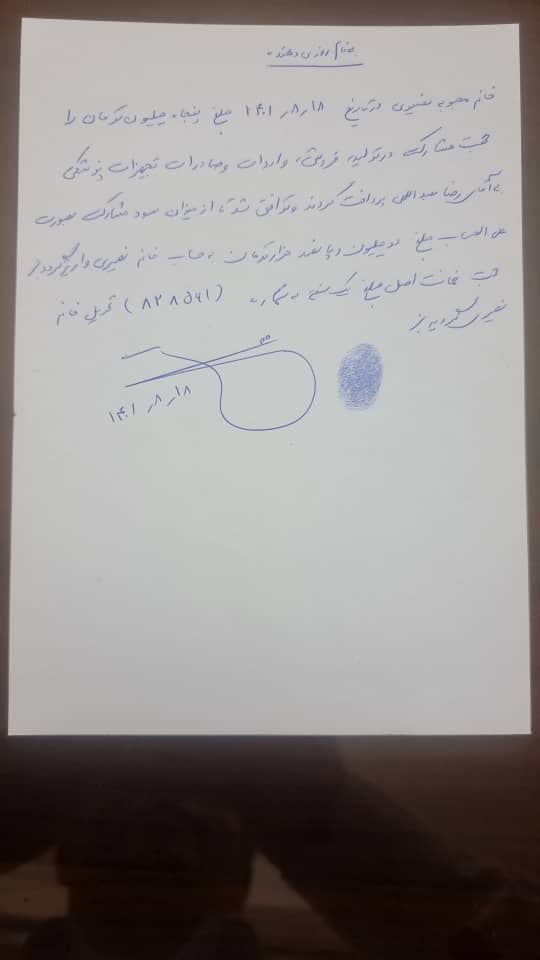 بنام روزی دهنده
خانم محبوبه نصیری در تاریخ ۱۴۰۱٫۸٫۱۸ مبلغ پنجاه میلیون تومان را
جهت مشارکت در تولید، فروش، واردات و صادرات تجهیزات پزشکی
به آقای رضا عبداللهی پرداخت کردند و توافق شد تا از میزان سود مشارکت بصورت
علی الحساب مبلغ دو میلیون و پانصد هزار تومان به حساب خانم نصیری واریز گردد
جهت ضمانت اصل مبلغ یک سفته به شماره (۸۲۸۵۶۱) تحویل خانم
نصیری گردید
۱۴۰۱٫۸٫۱۸